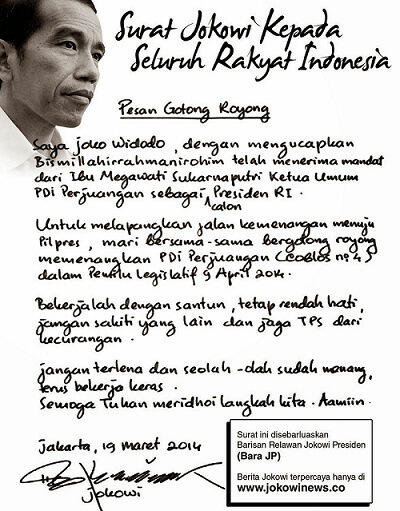 Surat Jokowi Kepada
Seluruh Rakyat Indonesia
Pesan Gotong Royong
Saya Joko Widodo, dengan mengucapkan
Bismillahirrahmanirohim telah menerima mandat
dari Ibu Megawati Sukarnaputri Ketua Umum
PDI Perjuangan sebagai Presiden RI.
calon
Untuk melapangkan jalan kemenangan menuju
Pilpres, mari bersama-sama bergotong royong
memenangkan PDI Perjuangan (coblos no 4)
dalam Pemilu legislatif 9 April 2014.
Bekerjalah dengan santun, tetap rendah hati,
jangan sakiti yang lain dan jaga TPS dari
kecurangan.
jangan terlena dan seolah-olah sudah menang,
terus bekerja keras.
Semoga Tuhan meridhoi langkah kita. Aamiin.
jakarta, 19 maret 2014
jokowi
Surat ini disebarluaskan
Barisan Relawan Jokowi Presiden
(Bara JP)
Berita Jokowi terpercaya hanya di
www.jokowinews.co